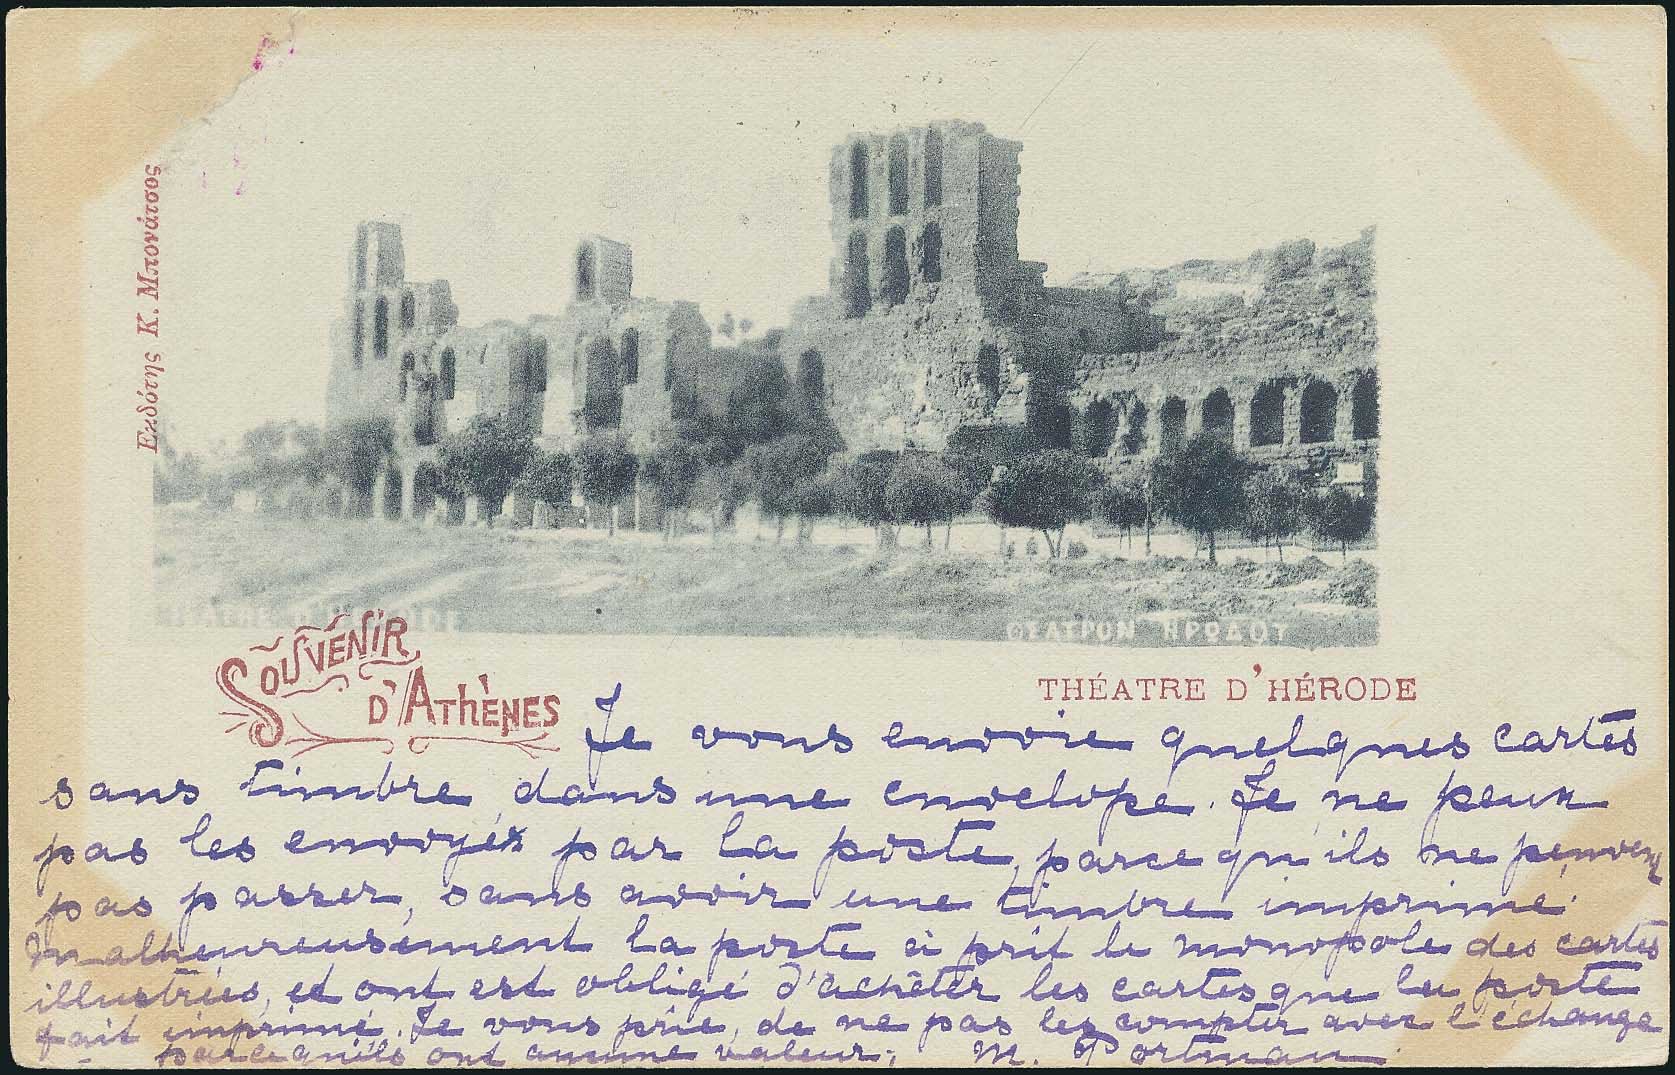 Εκδότης Κ. Μπονάτσος
THÉATRE D'HÉRODE
ΘΕΑΤΡΟΝ ΗΡΩΔΟΥ
SOUVENIR
D'ATHÈNES
THÉATRE D'HÉRODE
Je vous envoie quelques cartes
sans timbre dans une envelope. Je ne peux
pas les envoyér par la poste, parce qu'ils ne peuvent
pas passer, sans avoir une timbre imprimé.
Malheureusement la poste à prit le monopole des cartes
illustrées, et ont est obligé d'achêter les cartes que la poste
fait imprimé. Je vous prie, de ne pas les compter avec l'échange
parce qu'ils ont aucune valeur; M. Portman